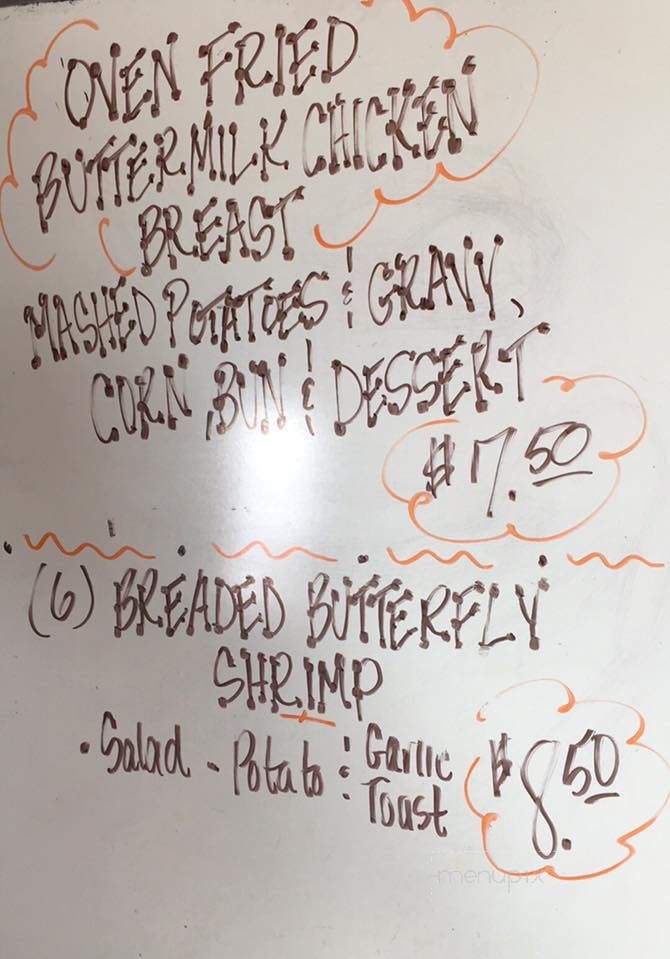 OVEN FRIED
BUTTERMILK CHICKEN
BREAST
MASHED POTATOES & GRAVY,
CORN, BUN & DESSERT
$7.50
(6) BREADED BUTTERFLY
SHRIMP
• Salad - Potato & Garlic Toast
$8.50
menupix